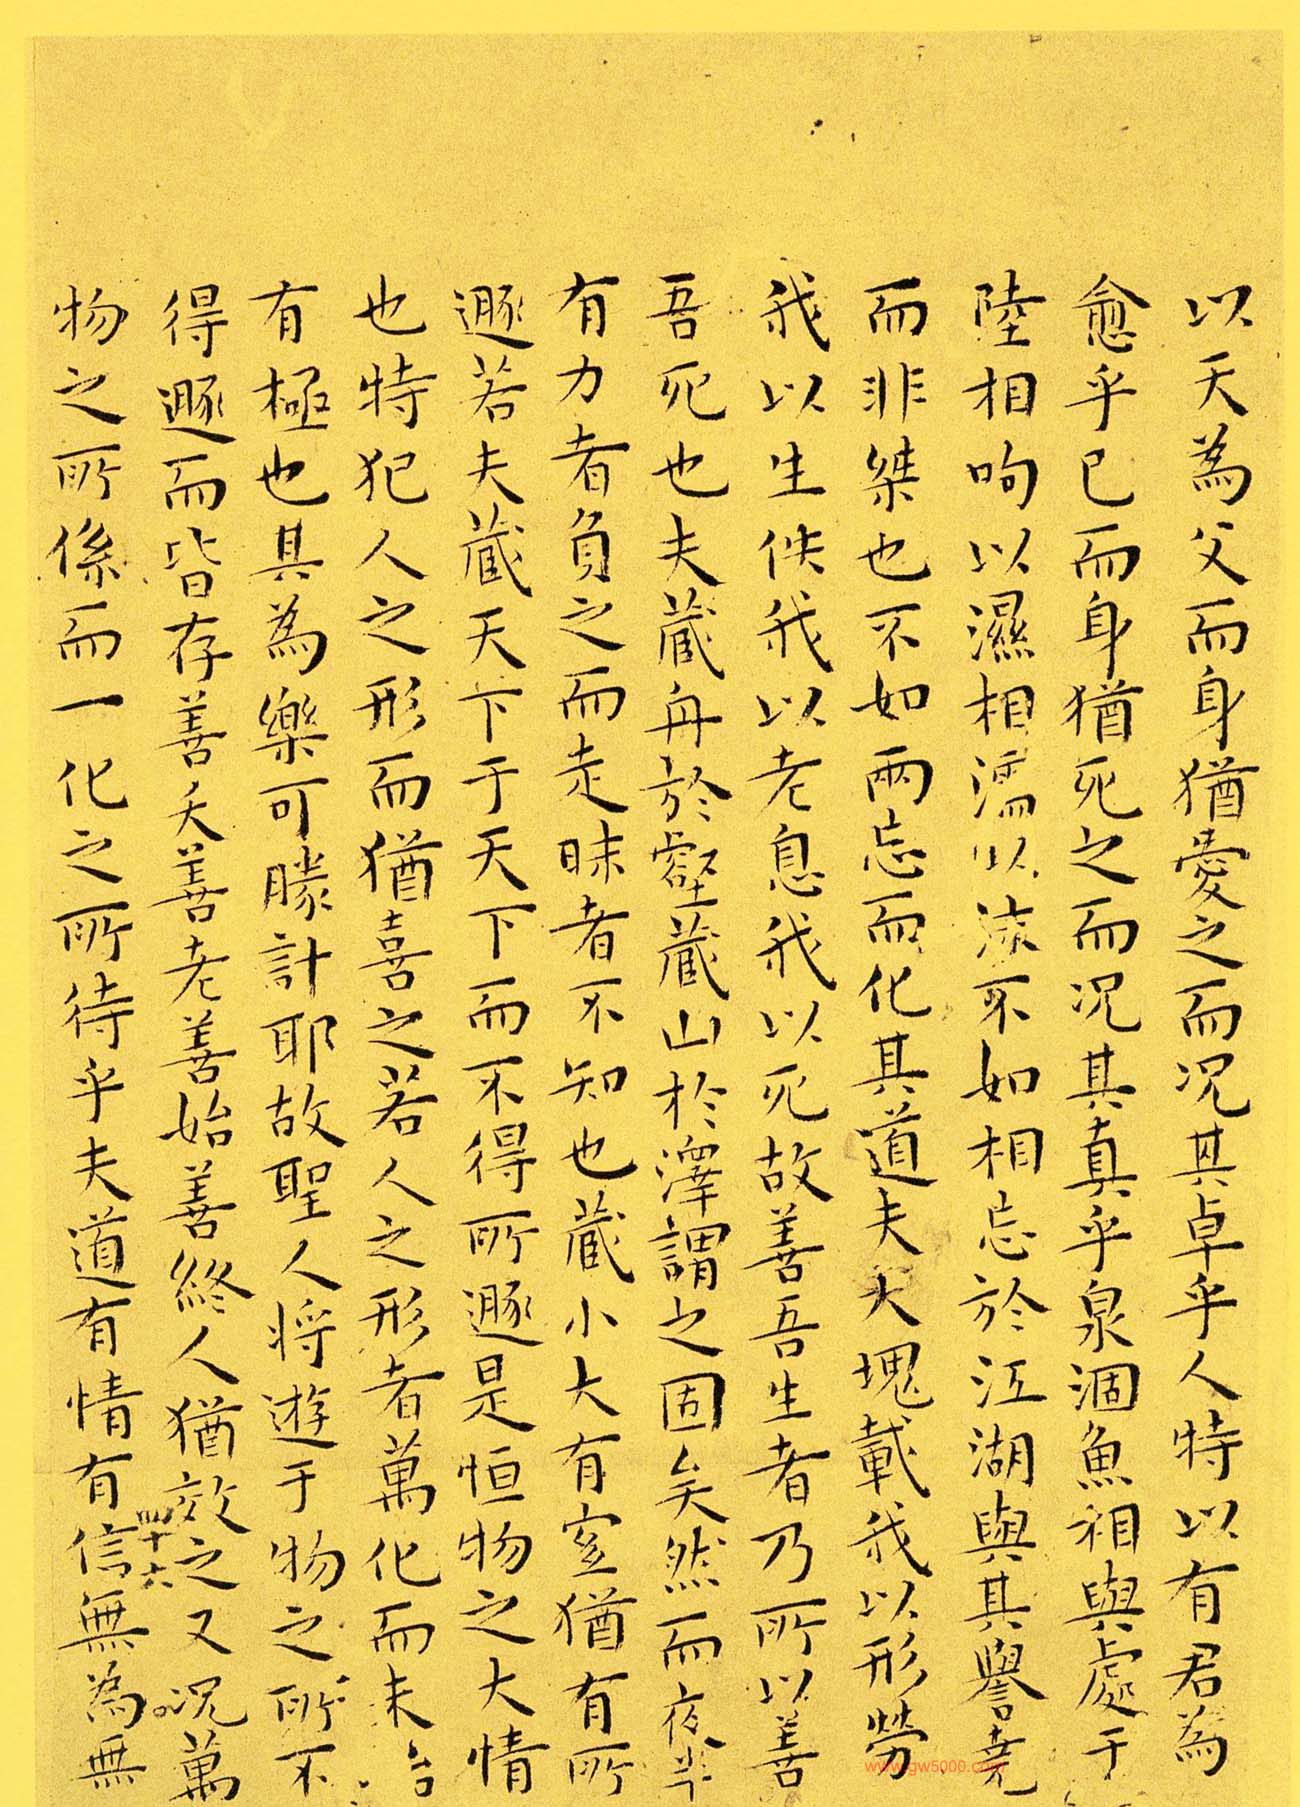 以天為父而身猶愛之而况其卓乎人特以有君為
愈乎已而身猶死之而况其真乎泉涸魚相與處于
陸相呴以濕相濡以沫不如相忘於江湖與其譽堯
而非桀也不如兩忘而化其道夫大塊載我以形勞
我以生佚我以老息我以死故善吾生者乃所以善
吾死也夫藏舟於壑藏山於澤謂之固矣然而夜半
有力者負之而走昧者不知也藏小大有宜猶有所
遯若夫藏天下于天下而不得所遯是恒物之大情
也特犯人之形而猶喜之若人之形者萬化而未始
有極也其為樂可勝計耶故聖人将遊于物之所不
得遯而皆存善夭善老善始善終人猶效之又况萬
物之所係而一化之所待乎夫道有情有信無為無
四十六
www.gw5000.com